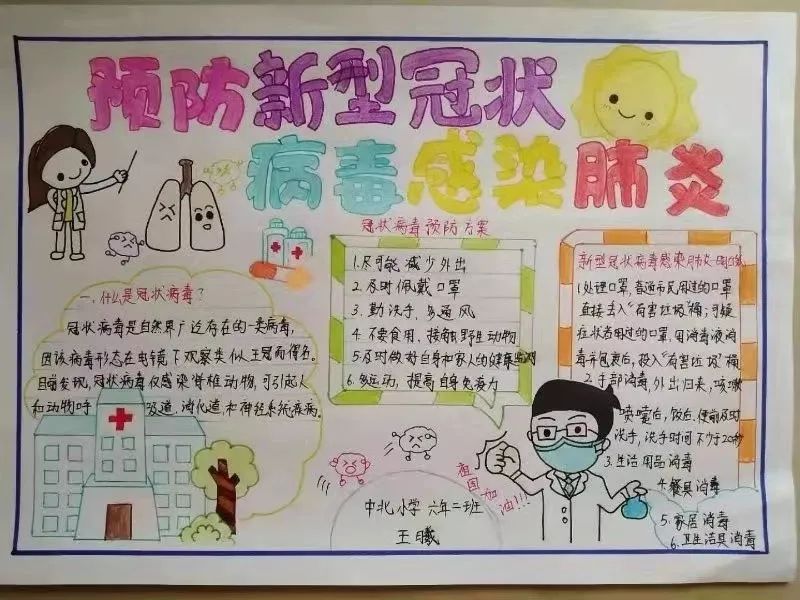 预防新型冠状
病毒感染肺炎
一、什么是冠状病毒？
冠状病毒是自然界广泛存在的一类病毒，
因该病毒形态在电镜下观察类似王冠而得名。
目前发现，冠状病毒仅感染脊椎动物，可引起人
和动物呼吸道、消化道和神经系统疾病。
冠状病毒预防方案
1.尽可能减少外出
2.及时佩戴口罩
3.勤洗手，多通风
4.不要食用、接触野生动物
5.及时做好自身和家人的健康监测
6.多运动，提高自身免疫力
新型冠状病毒感染肺炎
1.处理口罩，普通市民用过的口罩
直接丢入“有害垃圾”桶；可疑
症状者用过的口罩，用消毒液消
毒并包裹后，投入“有害垃圾”桶
2.手部消毒，外出归来，咳嗽
喷嚏后，饭后，便前及时
洗手，洗手时间不少于20秒
3.生活用品消毒
4.餐具消毒
5.家居消毒
6.卫生洁具消毒
祖国加油!!!
中北小学 六年二班
王曦